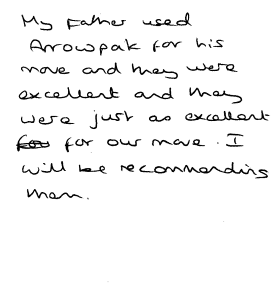 My Father used
Arrowpak for his
move and they were
excellent and they
were just as excellent
for for our move. I
will be recommending
them.